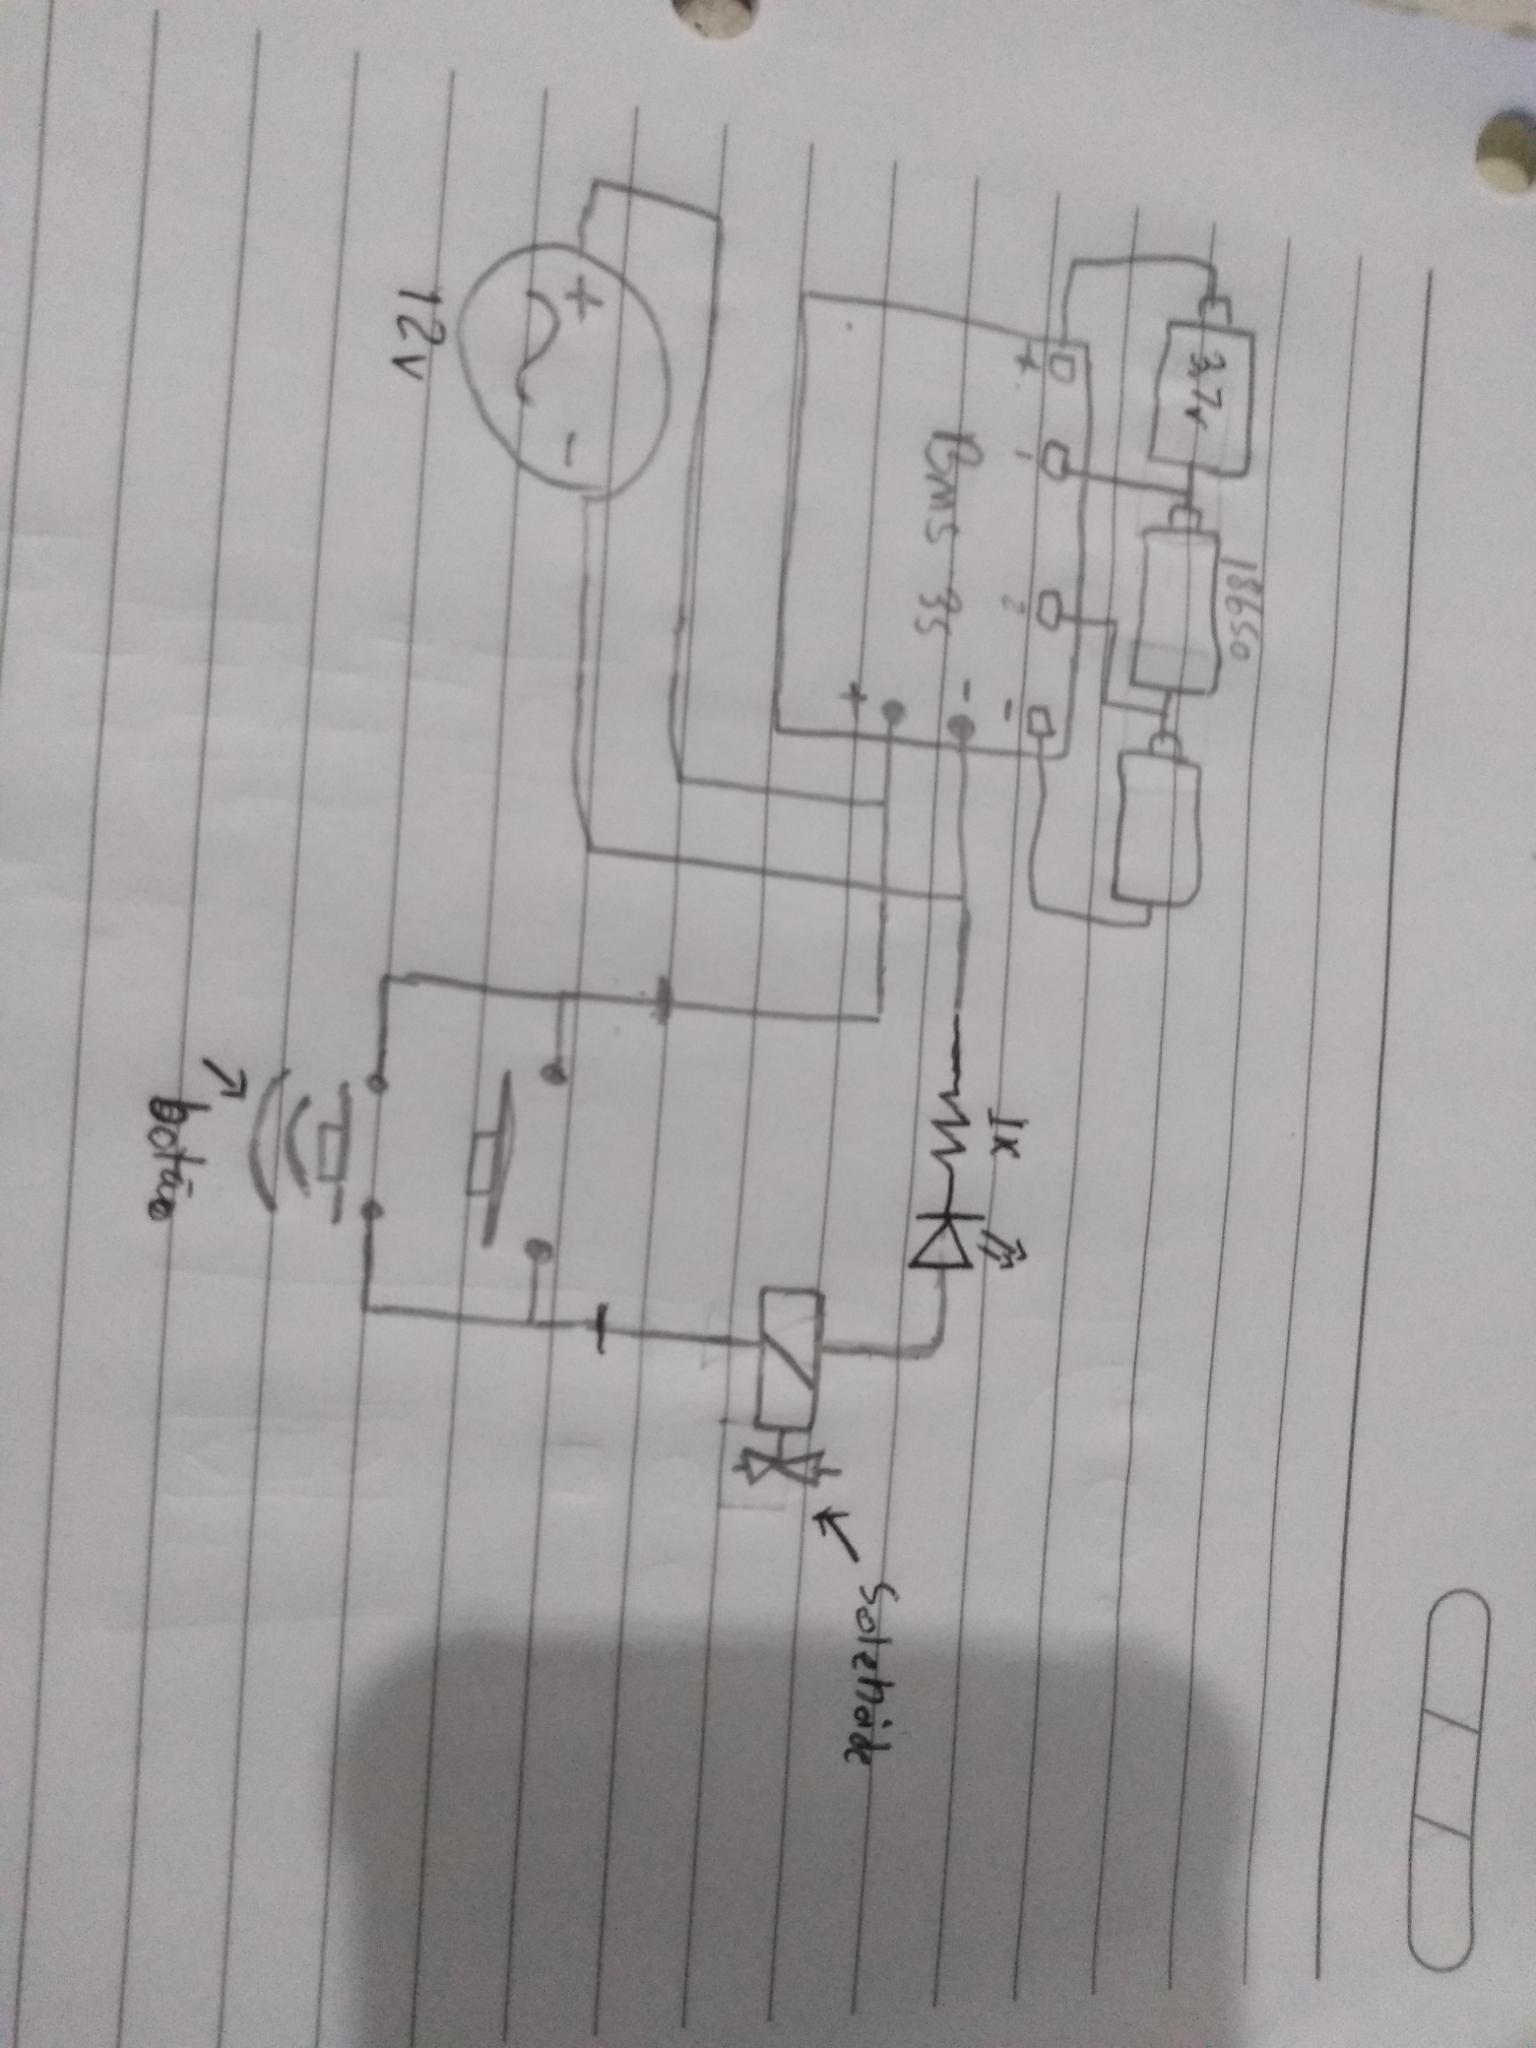 18650
3,7v
+ 1 2 -
BMS 3S
-
+
+ -
12v
1K
Solenoide
botão